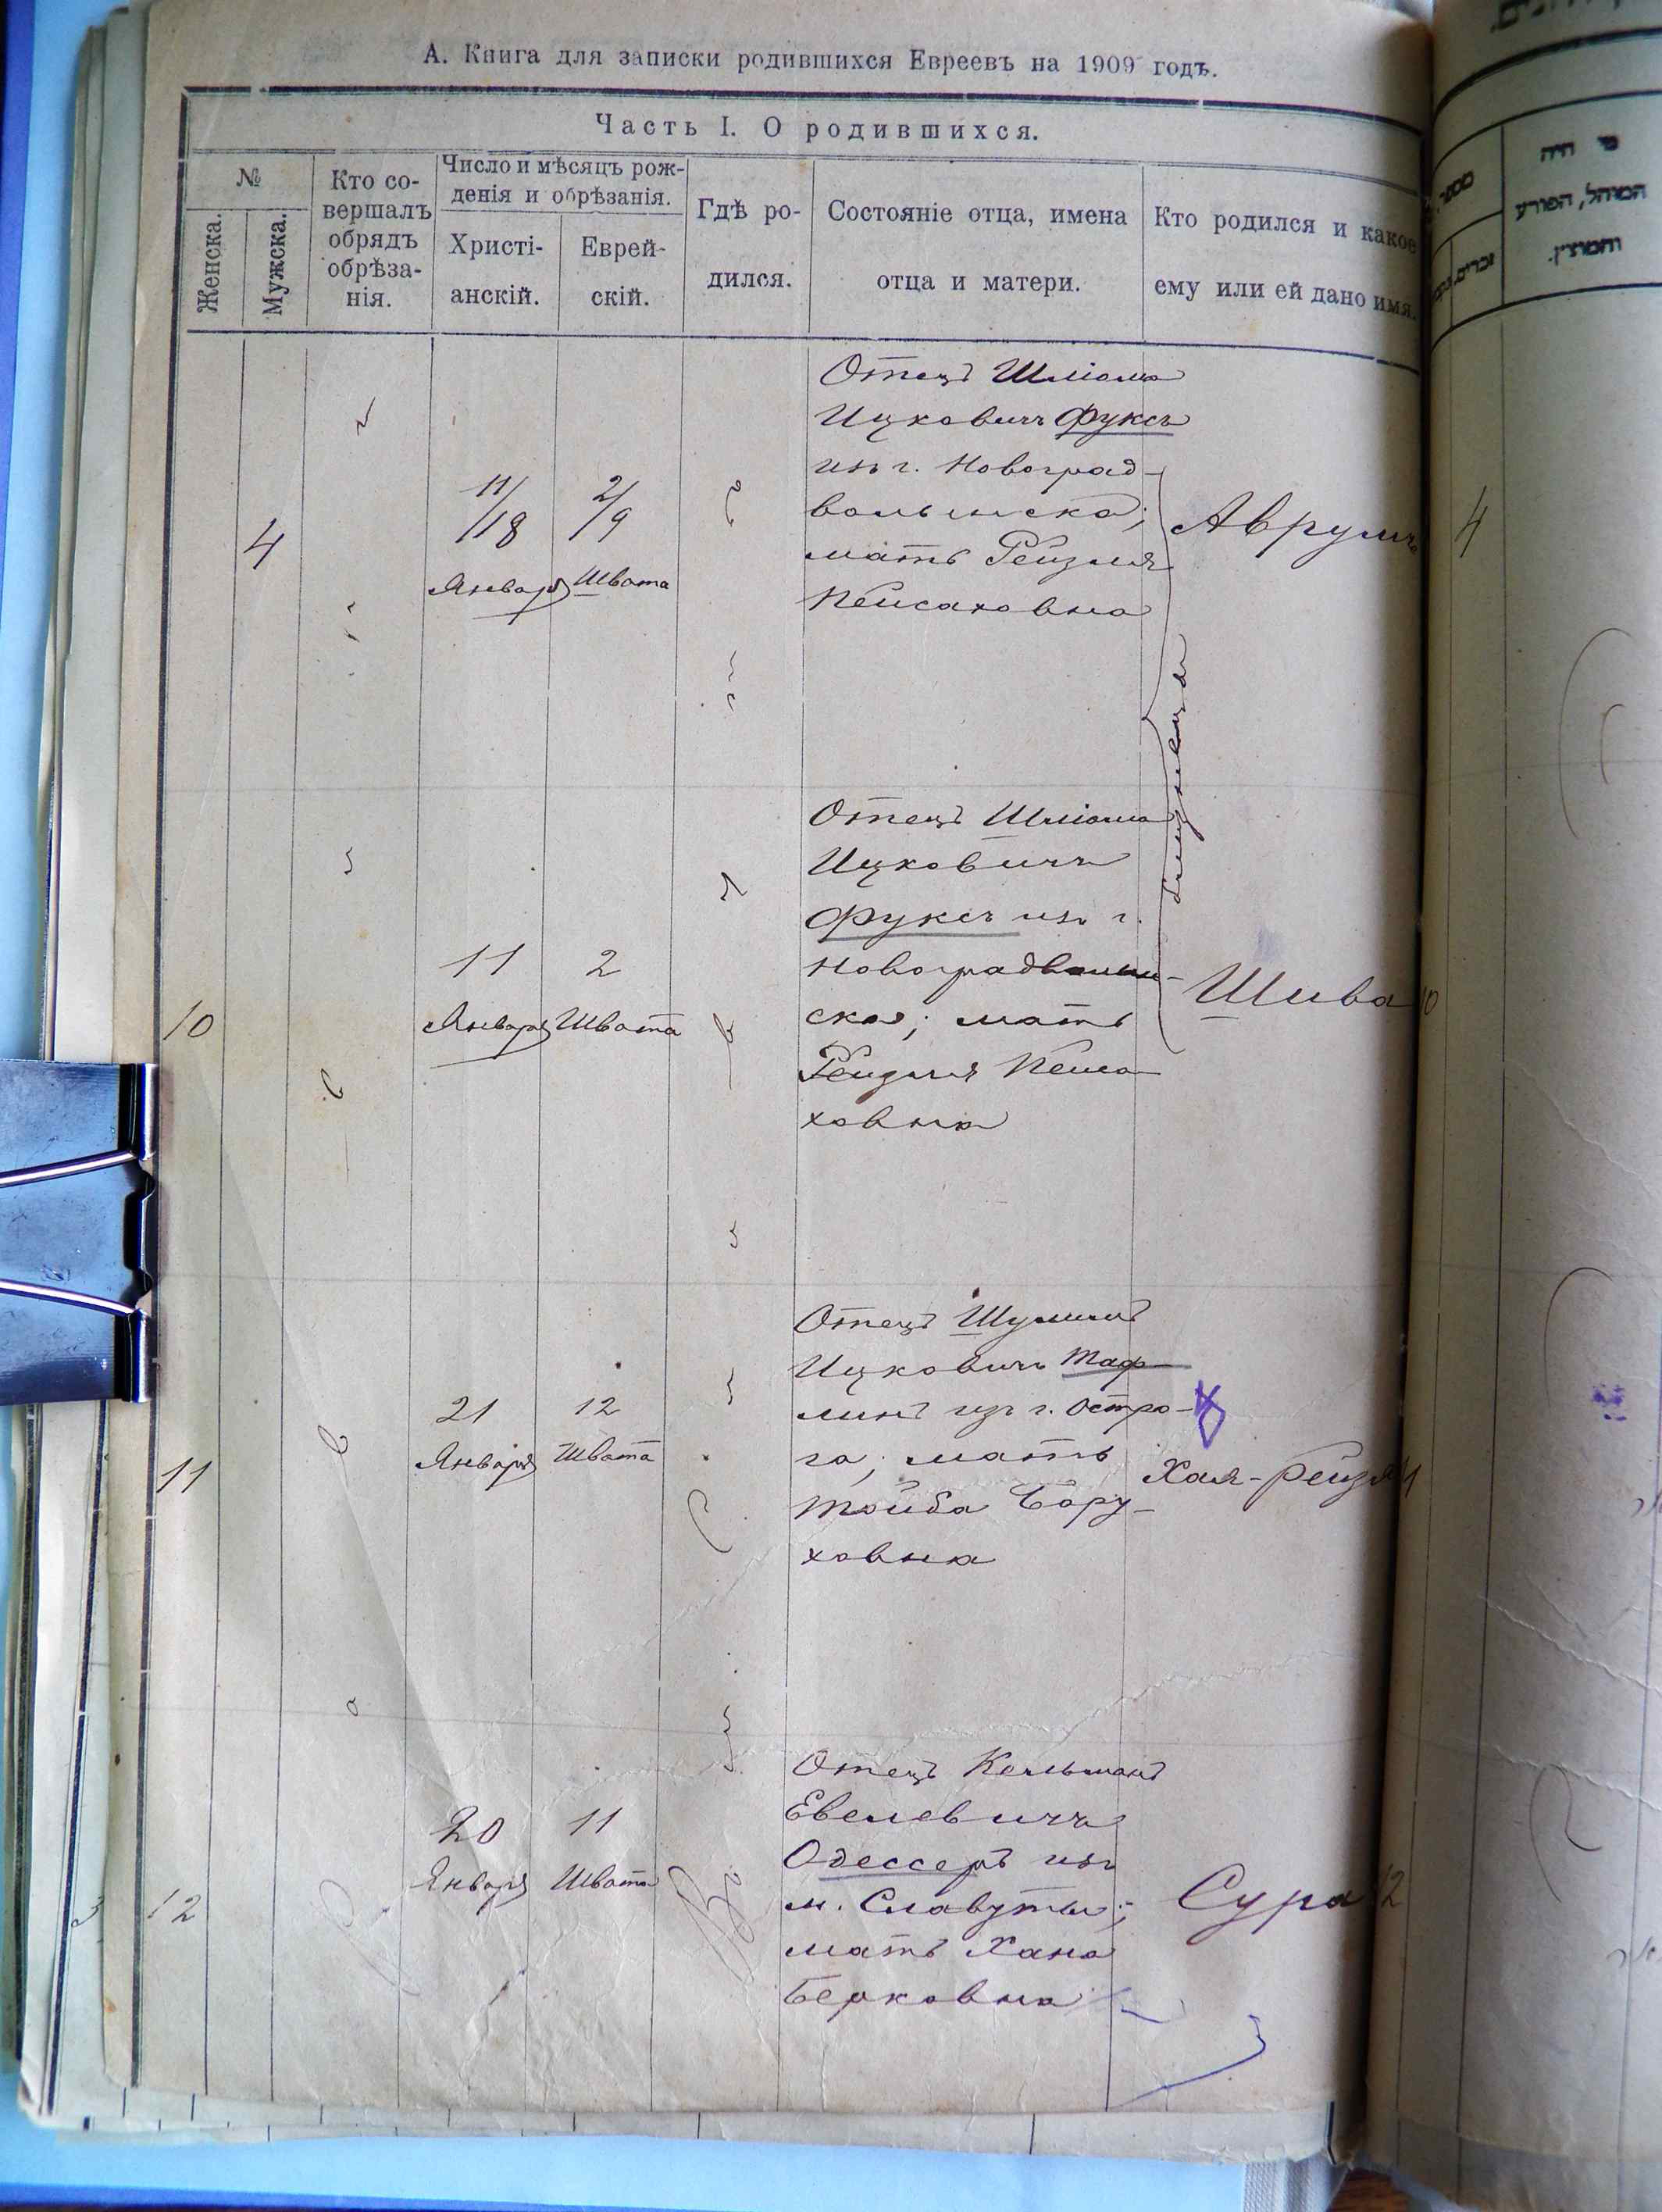 А. Книга для записки родившихся Евреевъ на 1909 годъ.
Часть I. О родившихся.
№
Женска.
Мужска.
Кто со-
вершалъ
обрядъ
обрѣза-
нія.
Число и мѣсяцъ рож-
денія и обрѣзанія.
Христі-
анскій.
Еврей-
скій.
Гдѣ ро-
дился.
Состояніе отца, имена
отца и матери.
Кто родился и какое
ему или ей дано имя.
4
11/18
Января
2/9
Швата
Отецъ Шліома
Ицковичъ Фуксъ
изъ г. Новоград-
волынска;
мать Рейзля
Пейсаховна
Аврумъ
4
близнецы
10
11
Января
2
Швата
Отецъ Шліома
Ицковичъ
Фуксъ изъ г.
Новоградволын-
ска; мать
Рейзля Пейса
ховна
Шива
10
11
21
Января
12
Швата
Отецъ Шулимъ
Ицковичъ Таф-
линъ изъ г. Остро-
га; мать
Тойба Бору-
ховна
Хая-Рейзя
11
12
20
Января
11
Швата
Отецъ Кельманъ
Евелевичъ
Одессеръ изъ
м. Славуты;
мать Хана
Берковна
Сура
12
3
מי היה
המוהל, הפורע
והמוצץ.
מספר
זכרים